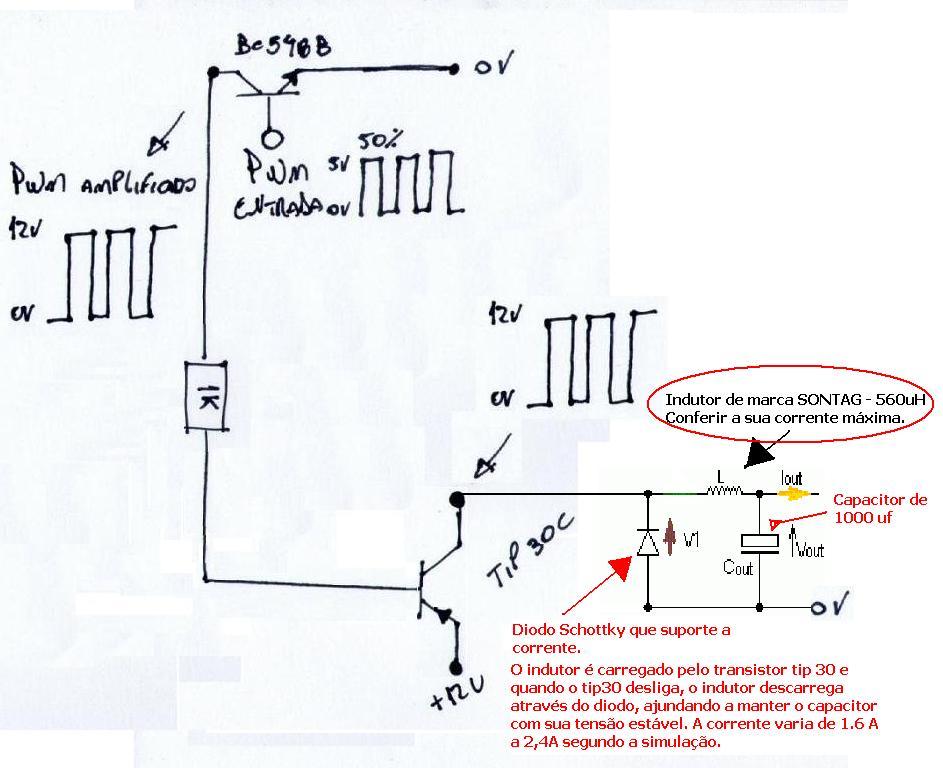 BC548B
0V
50%
5V
PWM
ENTRADA 0V
PWM AMPLIFICADO
12V
0V
12V
0V
1K
Indutor de marca SONTAG - 560uH
Conferir a sua corrente máxima.
L
Iout
Capacitor de
1000 uf
V1
Vout
Cout
0V
TIP 30C
+12V
Diodo Schottky que suporte a
corrente.
O indutor é carregado pelo transistor tip 30 e
quando o tip30 desliga, o indutor descarrega
através do diodo, ajundando a manter o capacitor
com sua tensão estável. A corrente varia de 1.6 A
a 2,4A segundo a simulação.